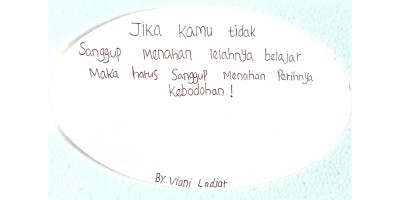 Jika kamu tidak
Sanggup menahan lelahnya belajar
Maka harus Sanggup Menahan Perihnya
Kebodohan !
By. Viani Ladjar